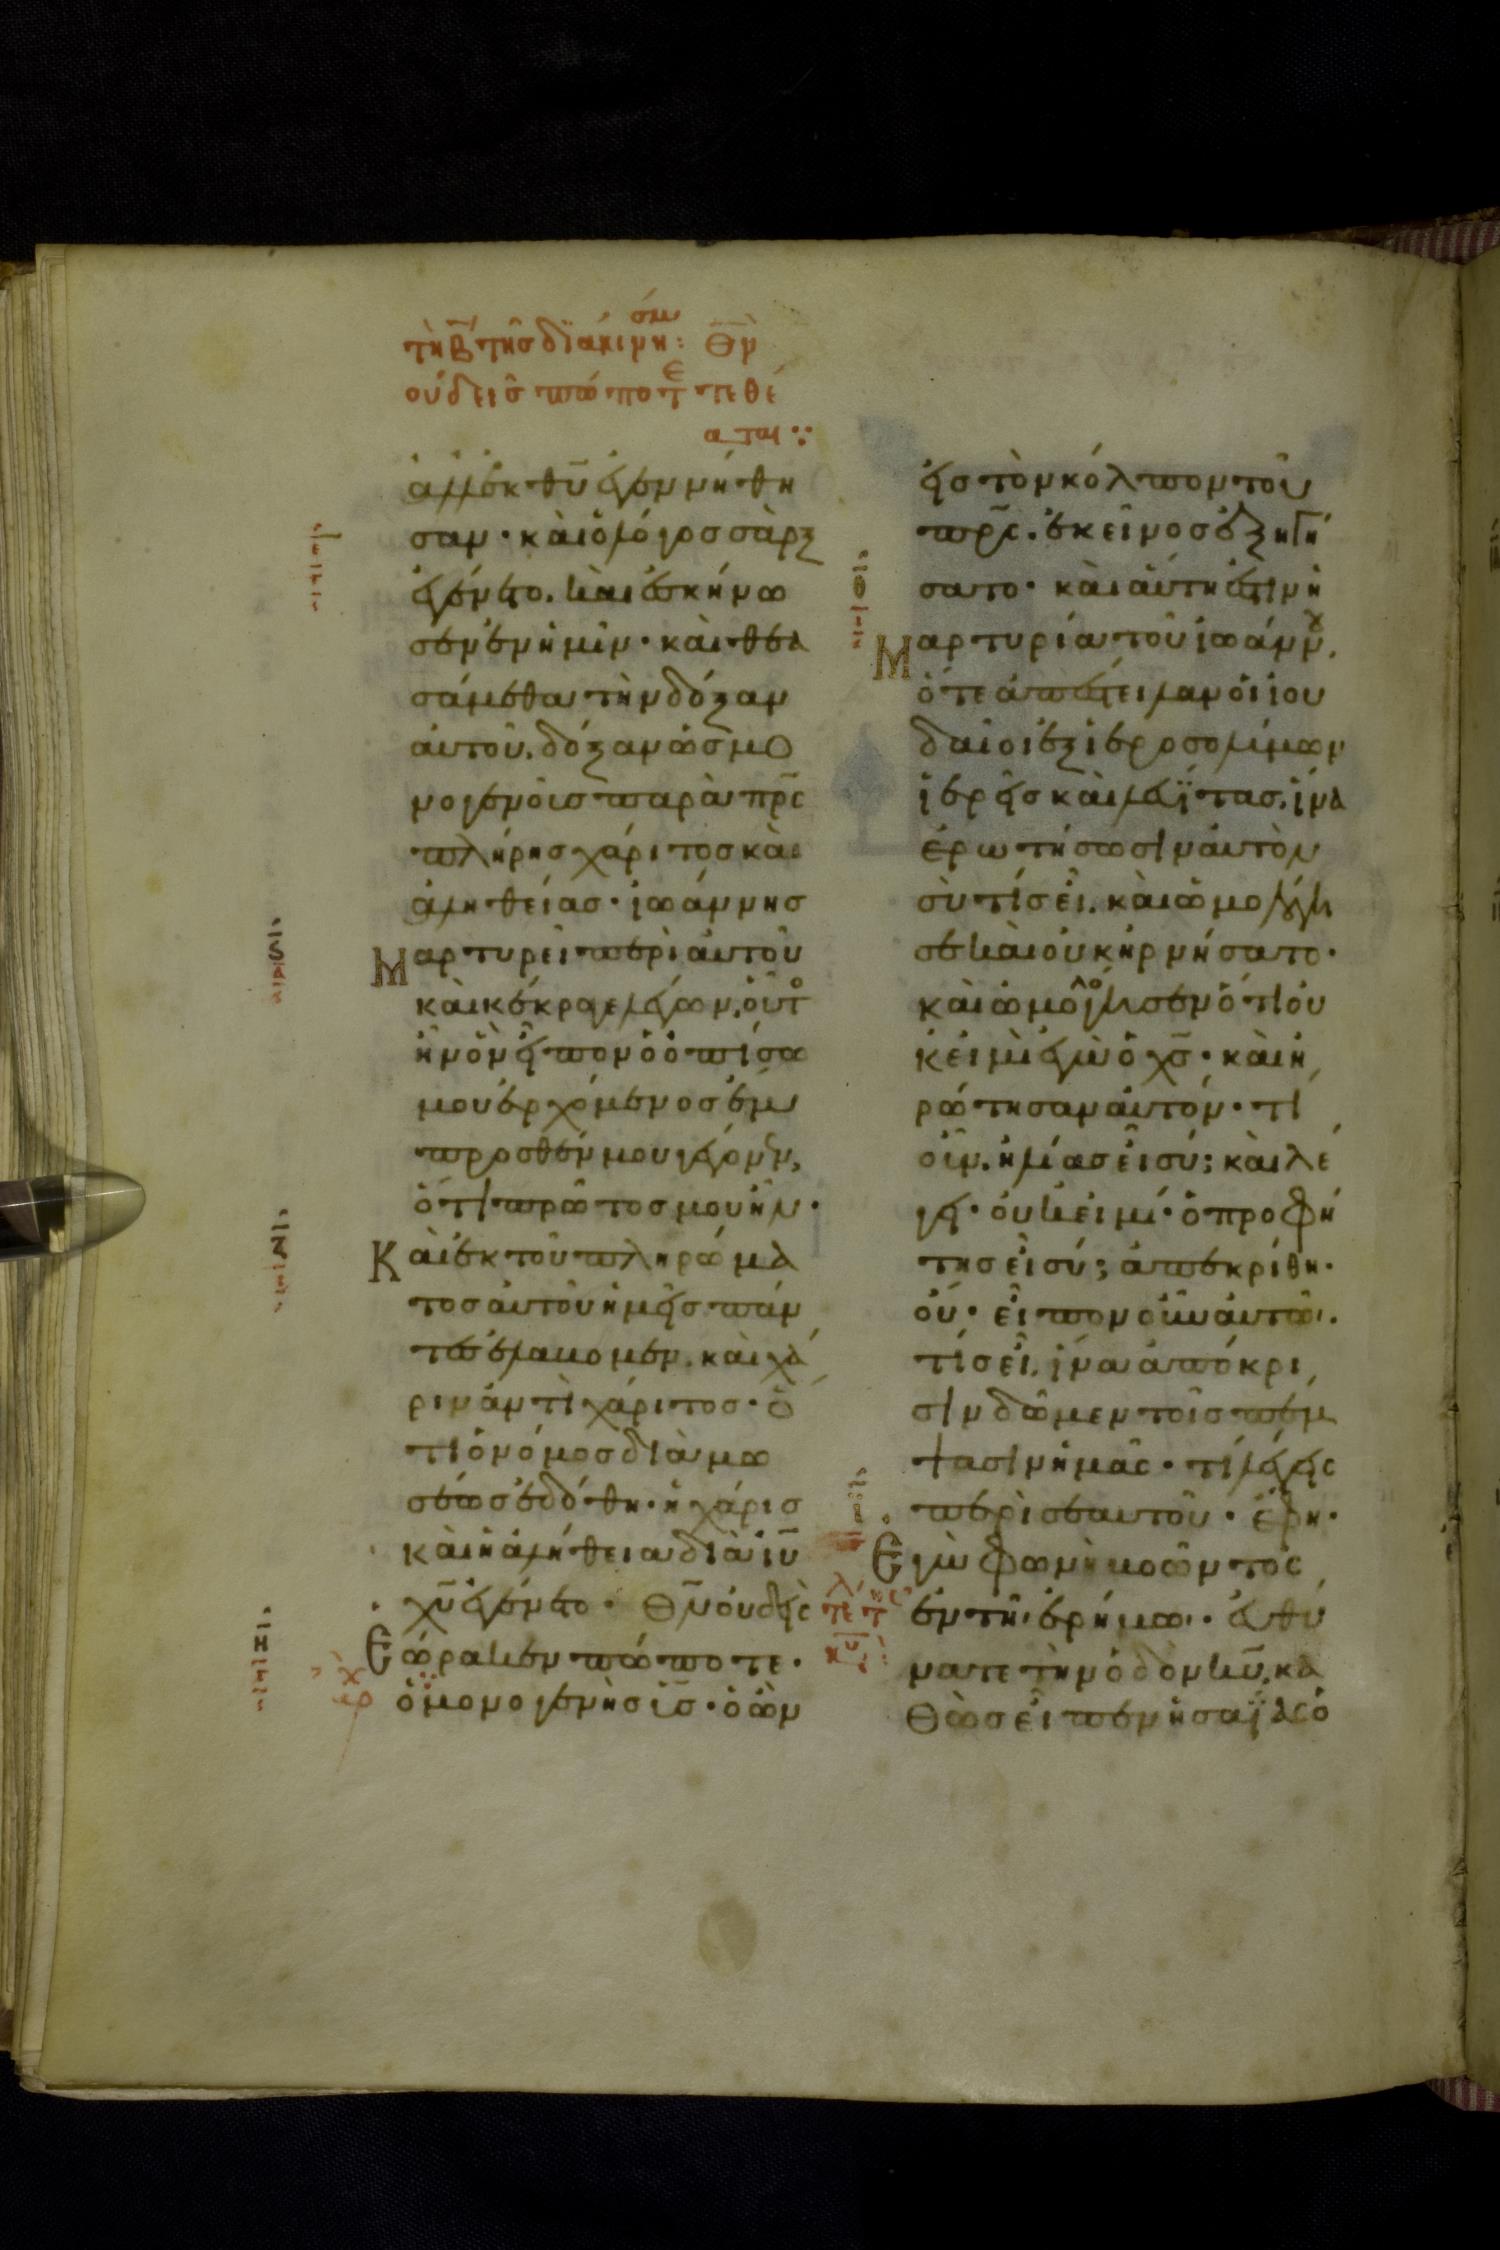 τὴ β̄ τῆσ διακινη: θ̄ν
οὐδεὶσ πώποτε τεθέ
αται
ἀλλ ἐκ θ̄υ ἐγεννήθη
σαν· καὶ ὁ λόγοσ σὰρξ
ἐγένετο. καὶ ἐσκήνω
σεν ἐν ἡμῖν· καὶ ἐθεα
σάμεθα τὴν δόξαν
αὐτοῦ. δόξαν ὡσ μο
νογενοῦσ παρὰ π̄ρσ
πλήρησ χάριτοσ καὶ
ἀληθείασ· ἰωάννησ
Μαρτυρεῖ περὶ αὐτοῦ
καὶ κέκραγε λέγων, οὗτο
ἦν ὃν εἶπον ὁ ὀπίσω
μου ἐρχόμενοσ ἔμ
προσθέν μου γέγονεν,
ὅτι πρῶτοσ μου ἦν·
Καὶ ἐκ τοῦ πληρώμα
τοσ αὐτοῦ ἡμεῖσ πάν
τεσ ἐλάβομεν. καὶ χά
ριν ἀντὶ χάριτοσ· ὅ
τι ὁ νόμοσ διὰ μω
σέωσ ἐδόθη· ἡ χάρισ
καὶ ἡ ἀλήθεια διὰ ῑυ
χ̄υ ἐγένετο· Θ̄ν οὐδεὶσ
Εώρακεν πώποτε·
ὁ μονογενὴσ ῡσ· ὁ ὢν
εἰσ τὸν κόλπον τοῦ
π̄ρσ. ἐκεῖνοσ ἐξηγή
σατο· καὶ αὕτη ἐστὶν ἡ
Μαρτυρία τοῦ ἰωάννου,
ὅτε ἀπέστειλαν οἱ ἰου
δαῖοι ἐξ ἱεροσολύμων
ἱερεῖσ καὶ λευΐτασ. ἵνα
ἐρωτήσωσιν αὐτὸν
σὺ τίσ εἶ. καὶ ὡμολόγη
σε καὶ οὐκ ἠρνήσατο·
καὶ ὡμολόγησεν ὅτι οὐ
κ εἰμὶ ἐγὼ ὁ χ̄σ· καὶ ἠ
ρώτησαν αὐτόν· τί
οὖν. ἠλίασ εἶ σύ; καὶ λέ
γει· οὐκ εἰμί· ὁ προφή
τησ εἶ σύ; ἀπεκρίθη·
οὔ· εἶπον οὖν αὐτῷ·
τίσ εἶ. ἵνα ἀπόκρι
σιν δῶμεν τοῖσ πέμ
ψασιν ἡμᾶσ· τί λέγεισ
περὶ σεαυτοῦ· ἔφη·
Εγὼ φωνὴ βοῶντοσ
ἐν τῇ ἐρήμω· εὐθύ
νατε τὴν ὁδὸν κ̄υ, κα
θὼσ εἶπεν ἡσαΐασ ὁ